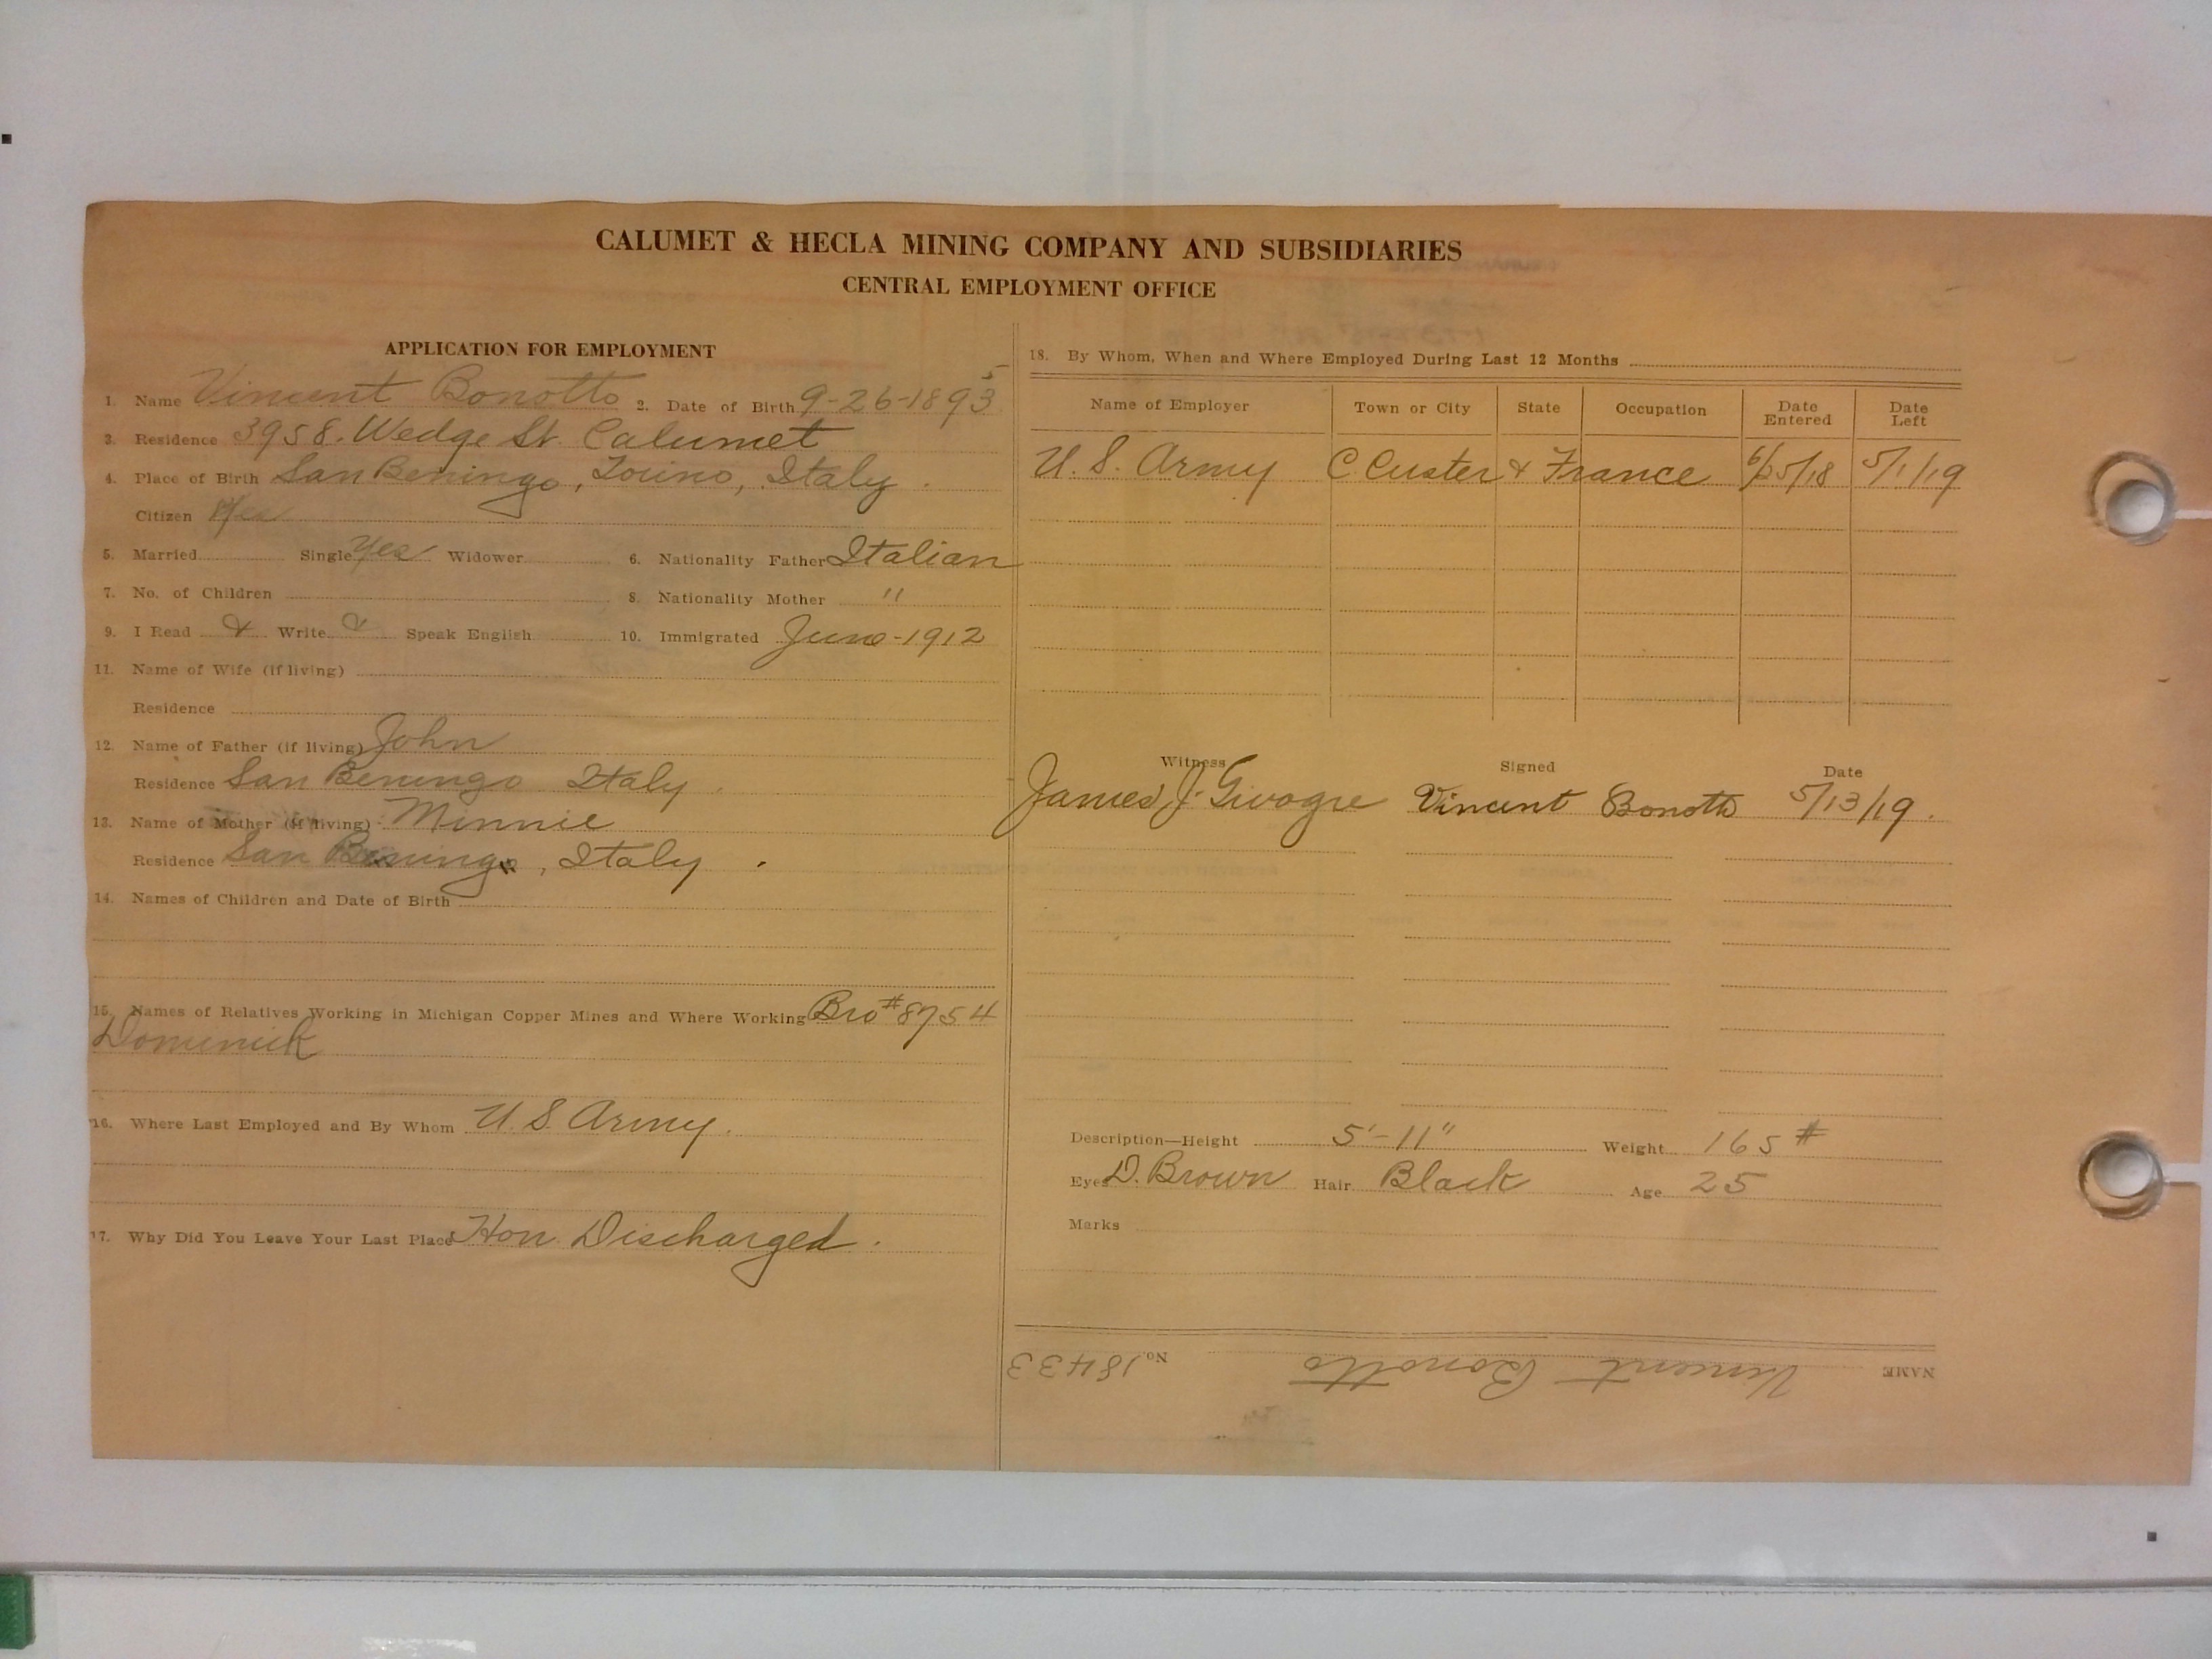 CALUMET & HECLA MINING COMPANY AND SUBSIDIARIES
CENTRAL EMPLOYMENT OFFICE
APPLICATION FOR EMPLOYMENT
1. Name Vincent Bonotto 2. Date of Birth 9-26-1893 5
3. Residence 3958. Wedge St. Calumet
4. Place of Birth San Beningo, Torino, Italy.
Citizen Yes
5. Married Single Yes Widower 6. Nationality Father Italian
7. No. of Children 8. Nationality Mother "
9. I Read & Write & Speak English 10. Immigrated June-1912
11. Name of Wife (if living)
Residence
12. Name of Father (if living) John
Residence San Beningo Italy.
13. Name of Mother (if living) Minnie
Residence San Beningo, Italy.
14. Names of Children and Date of Birth
15. Names of Relatives Working in Michigan Copper Mines and Where Working Bro #8754
Dominick
16. Where Last Employed and By Whom U.S. Army.
17. Why Did You Leave Your Last Place Hon Discharged.
18. By Whom, When and Where Employed During Last 12 Months
Name of Employer Town or City State Occupation Date Entered Date Left
U.S. Army C. Custer & France 6/25/18 5/1/19
Witness Signed Date
James J. Vincent Bonotto 5/13/19.
Description—Height 5'-11" Weight 165#
Eyes D. Brown Hair Black Age 25
Marks
NAME Vincent Bonotto No. 18433